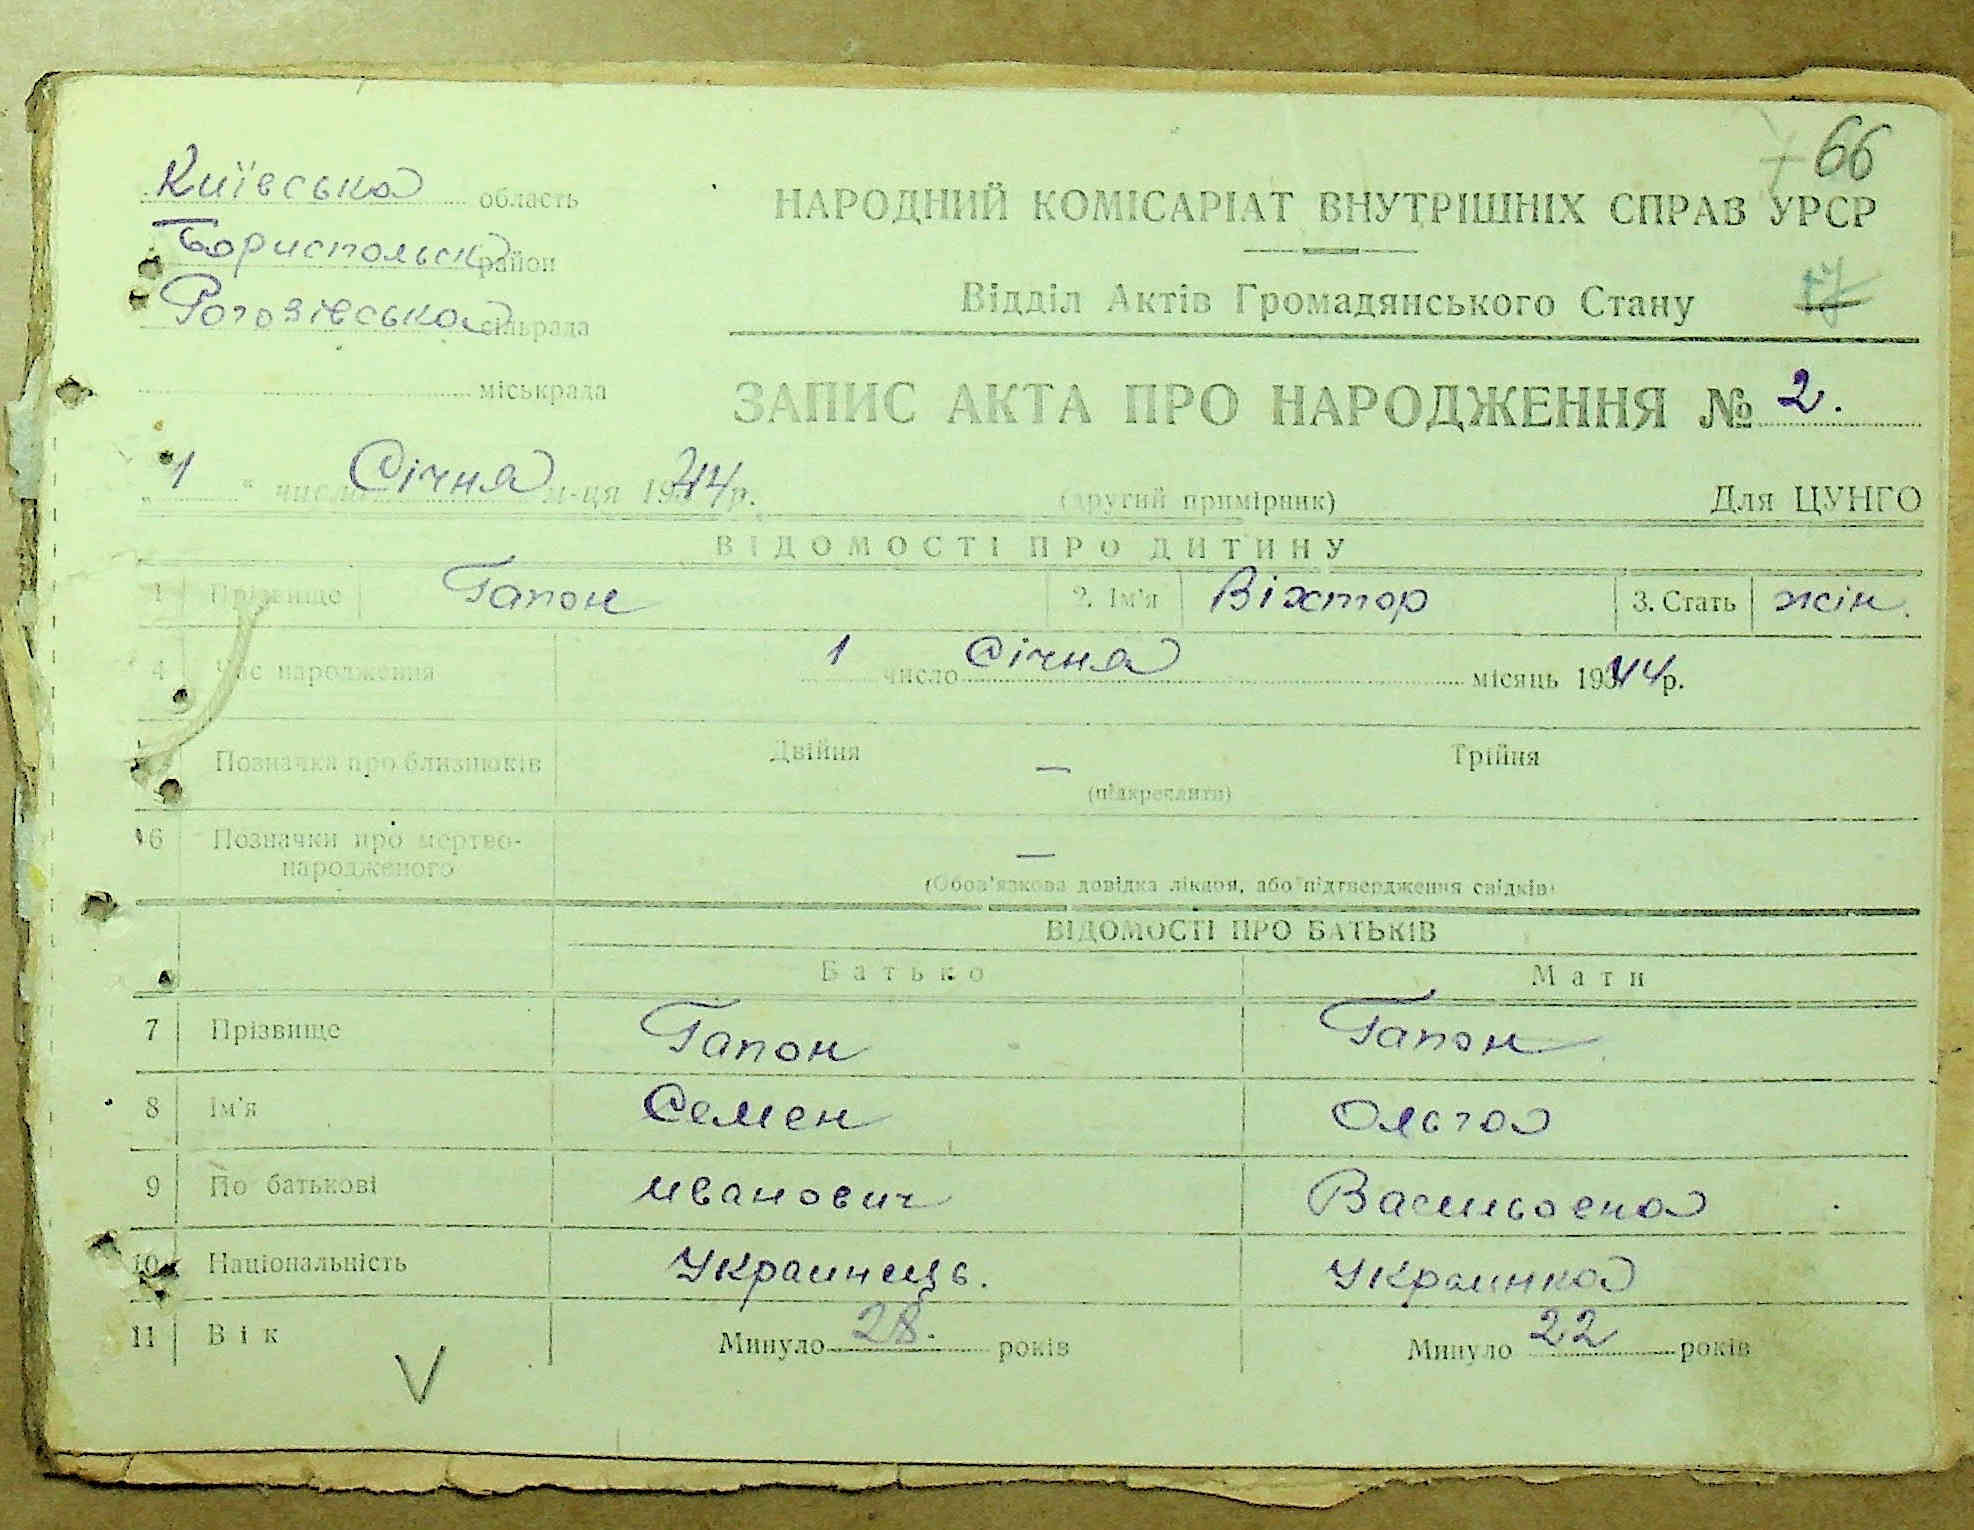 66
Київська область
НАРОДНИЙ КОМІСАРІАТ ВНУТРІШНІХ СПРАВ УРСР
Бориспольськ район
Відділ Актів Громадянського Стану 17
Роговівська сільрада
міськрада
ЗАПИС АКТА ПРО НАРОДЖЕННЯ № 2.
„ 1 “ число Січня м-ця 1944 р.
(другий примірник) Для ЦУНГО
ВІДОМОСТІ ПРО ДИТИНУ
1 Прізвище Гапон 2. Ім'я Віхтор 3. Стать жін.
4 Час народження 1 число Січня місяць 1944 р.
Позначка про близнюків Двійня — Трійня
(підкреслити)
6 Позначки про мертво-
народженого —
(Обов'язкова довідка лікаря, або підтвердження свідків)
ВІДОМОСТІ ПРО БАТЬКІВ
Батько Мати
7 Прізвище Гапон Гапон
8 Ім'я Семен Ольга
9 По батькові Иванович Васильовна
10 Національність Украинець. Украинка
11 Вік Минуло 28. років Минуло 22 років
V